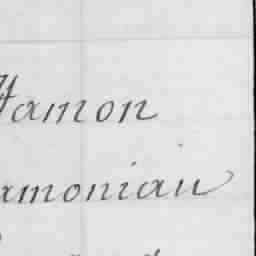 Hamon
amoniau